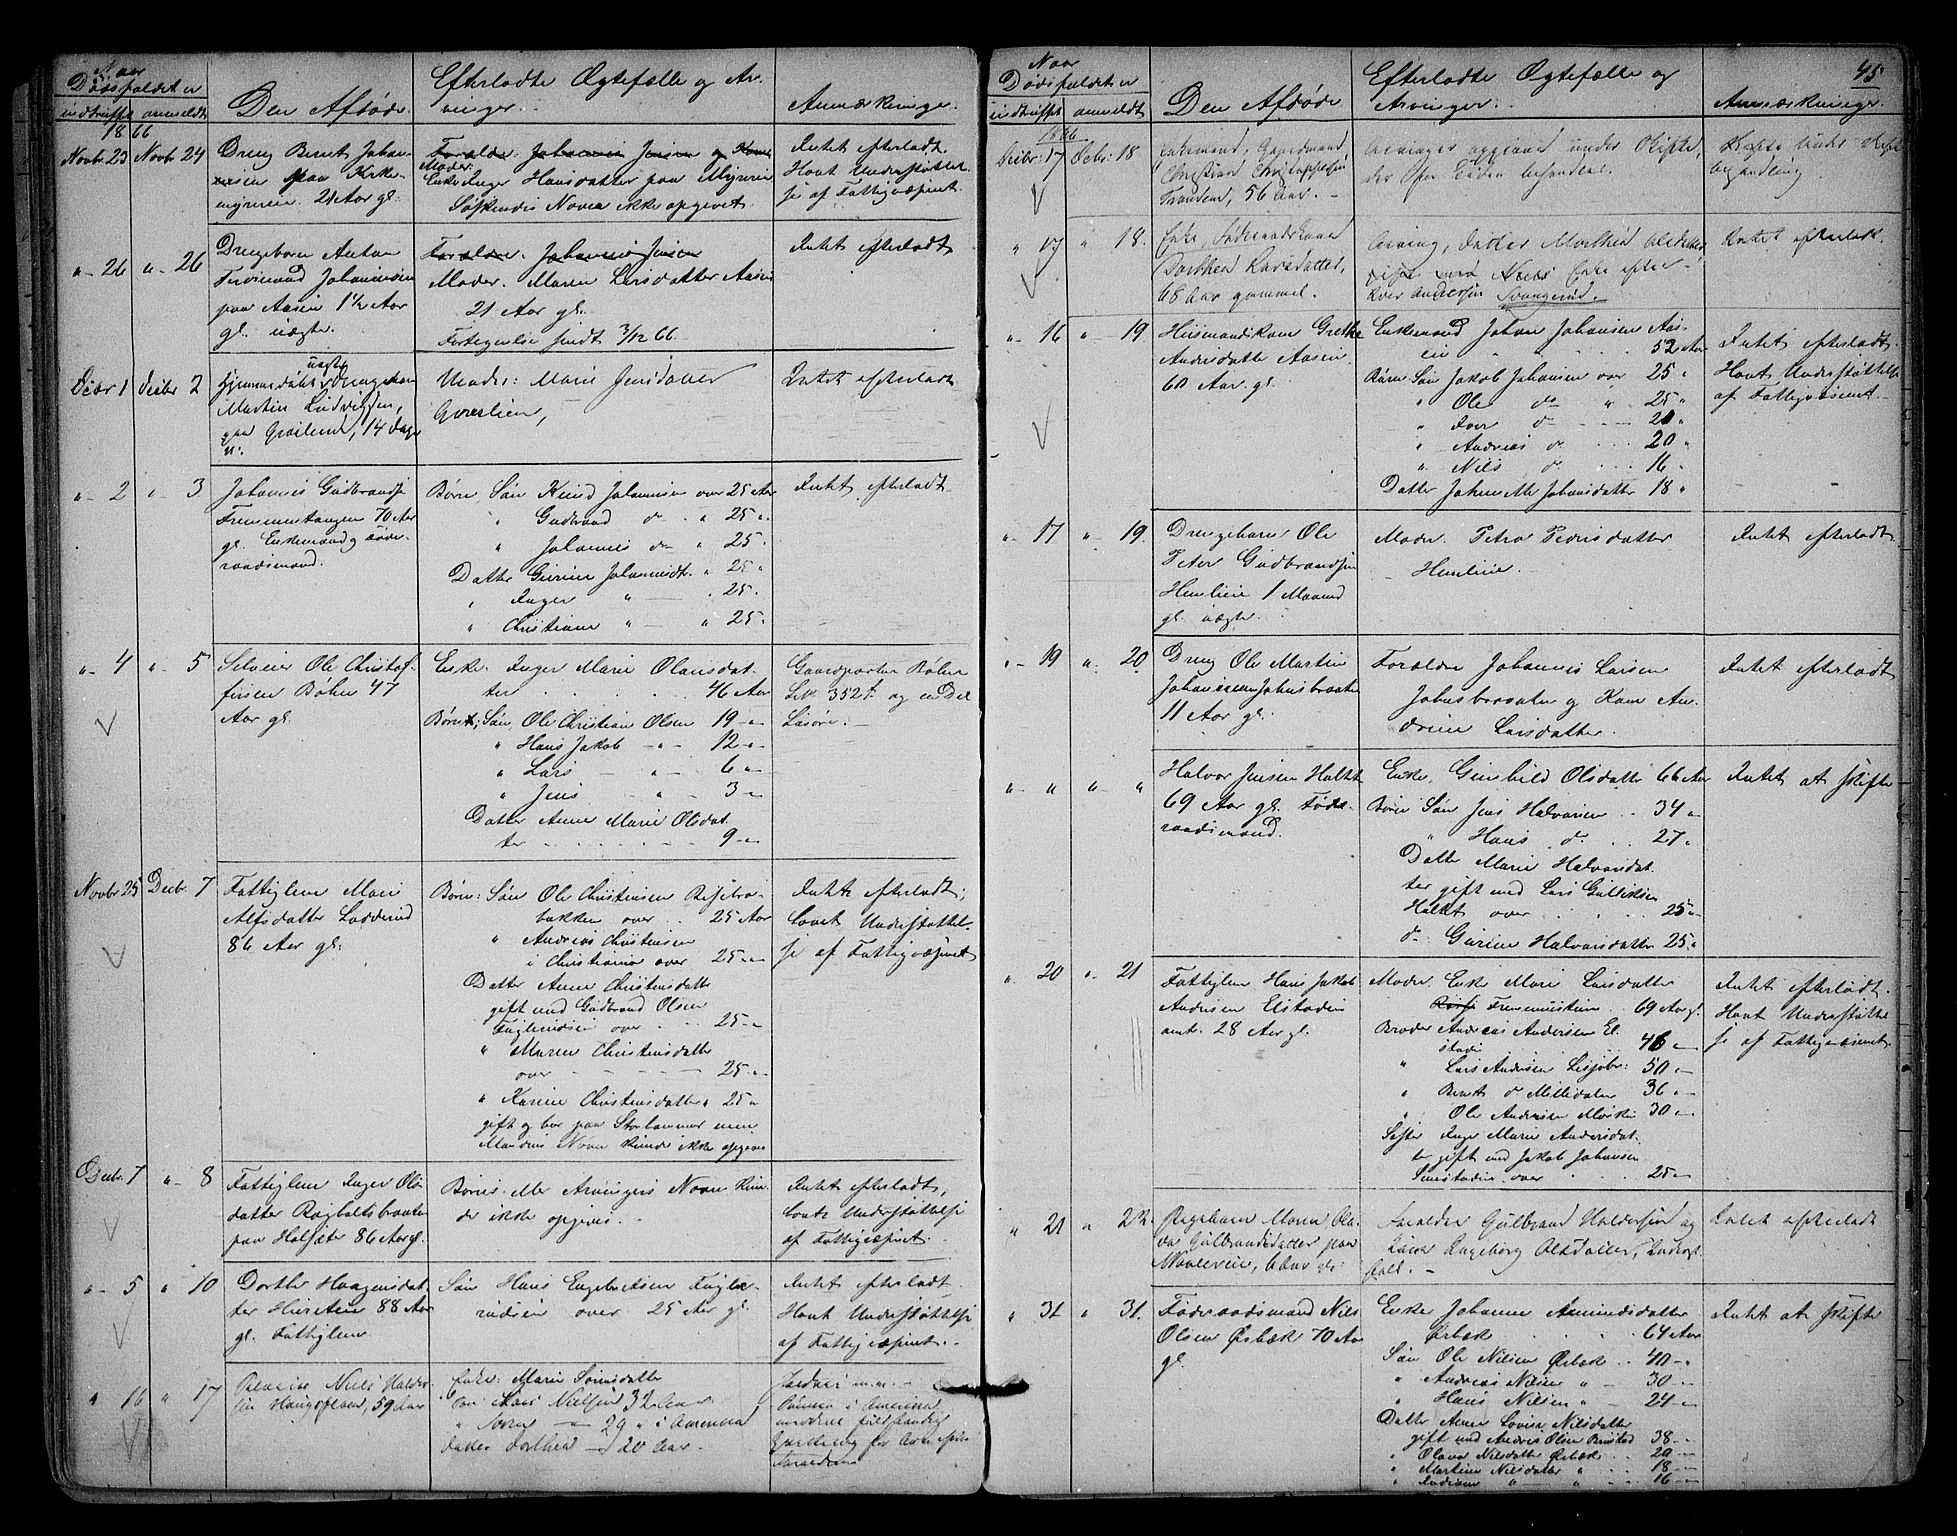 Naar
Dødsfaldet er
indtruffet anmeldt
Den Afdøde.
Efterladte Ægtefælle og Ar-
vinger.
Anmærkninger.
1866
Novbr 23 Novbr 24
Dreng Bernt Johan-
nesen paa Kirke-
myreneie 21 Aar gl:
Forældre: Johannes Jensen og Kone
Moder:
Enke Inger Hansdatter paa Myreneie
Søskendes Navne ikke opgivet
Intet efterladt.
Havt Understøttel-
se af Fattigvæsenet.
" - 26 " - 26
Drengebarn Anton
Ferdinand Johannesen
paa Aasen 1½ Aar
gl. uægte.
Forældre. Johannes Jensen
Moder. Maren Larsdatter Aasen
21 Aar gl.
Fortegnelse sendt 3/12 66.
Intet efterladt
Decbr 1 Decbr 2
uægte
Drengebarn
Martin Ludvigsen,
14 Dage
Moder: Marie Jensdatter
Intet efterladt
" - 2 " - 3
Johannes Gudbrandsen
Fremmestangen 70 Aar
gl. Enkemand og Føde-
raadsmand.
Børn, Søn Knud Johannesen over 25 Aar
" Gudbrand do " 25 "
" Johannes do " 25 "
Datter Gurine Johannesdt. " 25 "
" Inger " — " 25 "
" Christiane " — " 25 "
Intet efterladt
" - 4 " - 5
Selveier Ole Christof-
fersen Bøhn 47
Aar gl.
Enke. Inger Marie Olausdat-
ter . . . 46 Aar
Børn; Søn, Ole Christian Olsen 19 - "
" Hans Jakob - " - 12 - "
" Lars — " — 6 "
" Jens — " — 3 - "
Datter Anne Marie Olsdat-
ter . . . 9 - "
Gaardparten Bøhn
og en Del
Løsøre. -
Novbr 25 Decbr. 7
Fattiglem Mari
Alfsdatter
86 Aar gl:
Børn: Søn Ole Christensen
bakken over . . 25 Aar
" Andreas Christensen
i Christiania over 25 - "
Datter Anne Christensdatter
gift med Gudbrand Olsen
over . . 25 - "
" Maren Christensdatter
over - - - 25 - "
" Karine Christensdatter " 25 "
gift og bor paa Storhammer men
Mandens Navn kunde ikke opgives
Intet efterladt;
havt Understøttel-
se af Fattigvæsenet
Decbr. 7 " - 8
Fattiglem Inger Ols-
datter
paa Halsæter 86 Aar gl.
Børns eller Arvingers Navne kun-
de ikke opgives. -
Intet efterladt,
havt Understøttelse
af Fattigvæsenet.
" - 5 " 10
Dorthe Haagensdat-
ter 88 Aar
gl. Fattiglem.
Søn Hans Engebretsen Fugle-
rudeie over 25 Aar gl.
Intet efterladt.
Havt Understøttelse
af Fattigvæsenet. -
" 16 " 17
Niels Halvor-
sen 59 Aar
Enke: Marie
Søn Lars Nielsen 32 Aar
" — 29 " i Amerika
Datter Dorthea — 20 Aar. -
i Amerika
45
Naar
Dødsfaldet er
indtruffet anmeldt
Den Afdøde
Efterladte Ægtefælle og
Arvinger.
Anmærkninger.
1866
Decbr: 17 Decbr. 18
Enkemand, Gaardmand
Christian Christophersen
56 Aar. -
Arvinger opgivne under Skifte,
der for Enken behandles.
Skifte under Skifte-
behandling.
" 17 " 18.
Enke, Føderaadskone
Dorthea Larsdatter,
68 Aar gammel.
Arving, Datter Marthea
Enke efter
Iver Andersen
Intet efterladt.
" - 16 " - 19
Husmandskone Grethe
Andersdatter Aasen
60 Aar gl.
Enkemand Johan Johansen Aas-
en " . . . 52 Aar
Børn Søn Jakob Johansen over 25 "
" Ole do " 25 "
" Iver do - - 21 "
" Andreas do . . 20 "
" Nils do . . 16 "
Datter Johanette Johansdatter 18 "
Intet efterladt.
Havt Understøttelse
af Fattigvæsenet. -
" - 17 " - 19.
Drengebarn Ole
Peter Gudbrandsen
1 Maaned
gl. uægte.
Moder. Petra Pedersdatter
Intet efterladt
" - 19 " - 20
Dreng Ole Martin
Johannesen Johnsbraaten
11 Aar gl.
Forældre Johannes Larsen
Johnsbraaten og Kone An-
drine Larsdatter.
Intet efterladt
" - " " - "
Halvor Jensen
69 Aar gl. Føde-
raadsmand.
Enke, Gunhild Olsdatter 66 Aar
Børn Søn Jens Halvorsen . . 34 "
" Hans do 27 "
Datter Marie Halvorsdat-
ter gift med Lars Gulliksen
over . . . 25 "
do Gurine Halvorsdatter 25 "
Intet at skifte
" - 20 " - 21
Fattiglem Hans Jakob
Andersen Elstadeie
omt. 28 Aar gl.
Moder Enke Mari Larsdatter
69 Aar gl.
Brødre Andreas Andersen El-
stadeie 46 "
" Lars Andersen 50 "
" Bernt do 36 "
" Ole Andersen 30 "
Søster Inger Marie Andersdat-
ter gift med Jakob Johansen
over . . 25 - "
Intet efterladt.
Havt Understøttel-
se af Fattigvæsenet
" 21 " 22.
Pigebarn Maren Ola-
va Gulbrandsdatter paa
6 Aar gl:
Forældre Gulbrand Halvorsen og
Kone Ingeborg Olsdatter,
Intet efterladt
" 31 " 31.
Føderaadsmand Nils
Olsen Ørbæk 70 Aar
gl.
Enke Johanne Amundsdatter
Ørbæk . . . 64 Aar
Søn Ole Nilsen Ørbæk . . 40 - "
" Andreas Nilsen " — 30 - "
" Hans Nilsen " — 24 - "
Datter Anne Lovise Nilsdatter
gift med Andreas Olsen 38 - "
" Olava Nilsdatter Ørbæk . . 20 - "
" Martine Nilsdatter " . . 18 - "
" Andrine " — " . . 16 - "
Intet at skifte